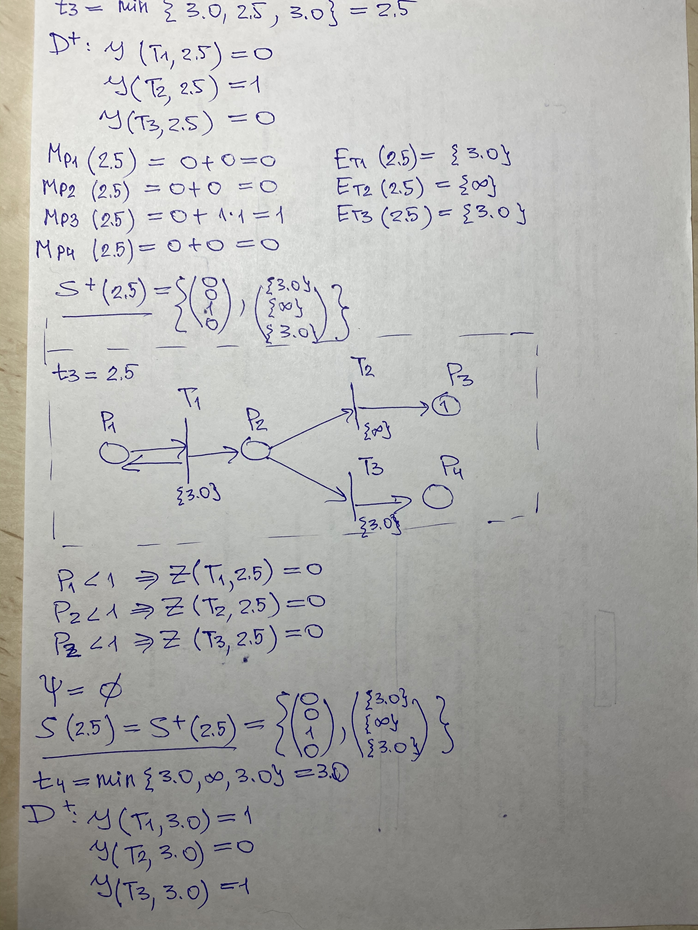 t3 = min { 3.0, 2.5, 3.0} = 2.5
D⁺: Y (T1, 2.5) = 0
Y(T2, 2.5) = 1
Y(T3, 2.5) = 0
MP1 (2.5) = 0+0=0 ET1 (2.5) = {3.0}
MP2 (2.5) = 0+0 = 0 ET2 (2.5) = {∞}
MP3 (2.5) = 0+1·1 = 1 ET3 (2.5) = {3.0}
MP4 (2.5) = 0+0 = 0
S⁺(2.5) = {(0 0 1 0), ({3.0} {∞} {3.0})}
t3 = 2.5
T2
P3
T1
P1
P2
1
{∞}
T3
P4
{3.0}
{3.0}
P1 < 1 ⇒ Z(T1, 2.5) = 0
P2 < 1 ⇒ Z(T2, 2.5) = 0
P2 < 1 ⇒ Z (T3, 2.5) = 0
Ψ = ∅
S (2.5) = S⁺(2.5) = {(0 0 1 0), ({3.0} {∞} {3.0})}
t4 = min {3.0, ∞, 3.0} = 3.0
D⁺: Y(T1, 3.0) = 1
Y(T2, 3.0) = 0
Y(T3, 3.0) = 1